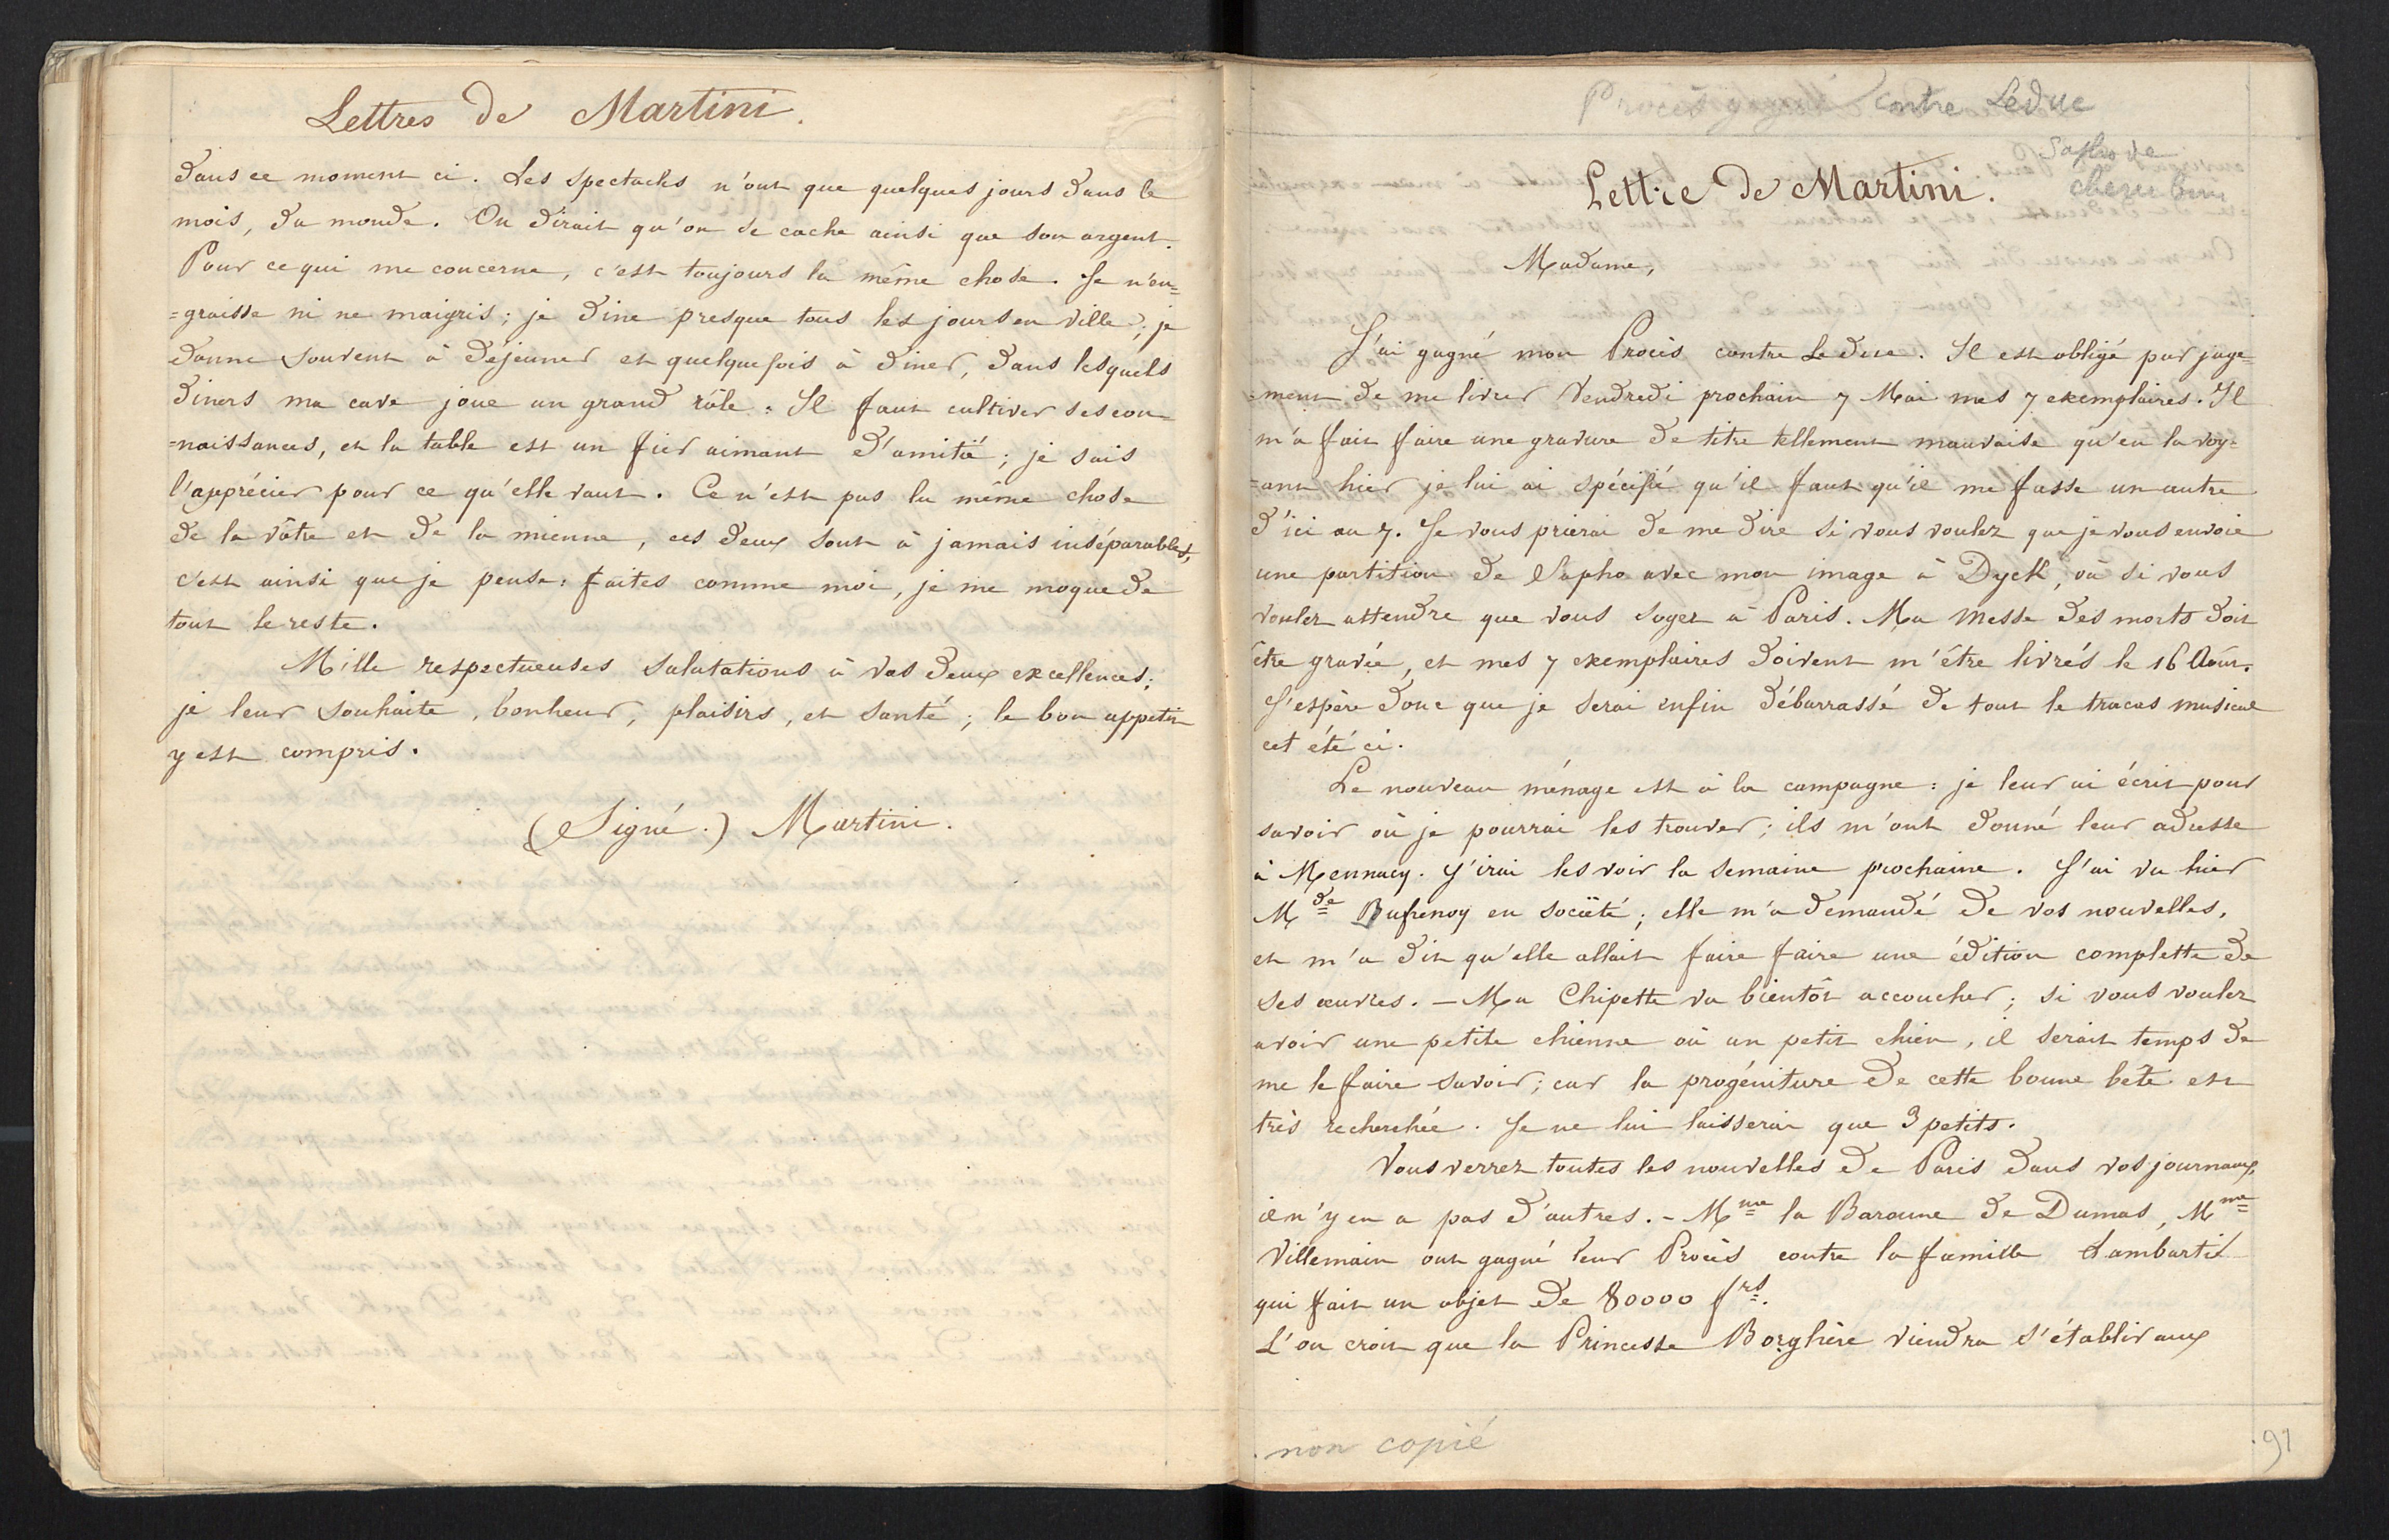 Lettres de Martini.
dans ce moment ci. Les spectacles n'ont que quelques jours dans le
mois, du monde. On dirait qu'on se cache ainsi que son argent.
Pour ce qui me concerne, c'est toujours la même chose. Je n'en=
=graisse ni ne maigris; je dine presque tous les jours en ville; je
donne souvent à déjeuner et quelquefois à diner, dans lesquels
diners ma cave joue un grand rôle. Il faut cultiver ses con=
=naissances, et la table est un fier aimant d'amitié; je sais
l'apprécier pour ce qu'elle vaut. Ce n'est pas la même chose
de la vôtre et de la mienne, ces deux sont à jamais inséparables,
c'est ainsi que je pense: faites comme moi, je me moque de
tout le reste.
Mille respectueuses salutations à vos deux excellences;
je leur souhaite, bonheur, plaisirs, et santé; le bon appetit
y est compris.
(Signé.) Martini.
Procès gagné contre Leduc
Sapho de
cherubini
Lettre de Martini.
Madame,
J'ai gagné mon Procès contre Leduc. Il est obligé par juge=
=ment de me livrer Vendredi prochain 7 Mai mes 7 exemplaires. Il
m'a fait faire une gravure de titre tellement mauvaise qu'en la voy=
=ant hier je lui ai spécifié qu'il faut qu'il me fasse un autre
d'ici au 7. Je vous prierai de me dire si vous voulez que je vous envoie
une partition de Sapho avec mon image à Dyck, où si vous
voulez attendre que vous soyez à Paris. Ma Messe des morts doit
être gravée, et mes 7 exemplaires doivent m'être livrés le 16 Août.
J'espère donc que je serai enfin débarrassé de tout le tracas musical
cet été ci.
Le nouveau ménage est à la campagne: je leur ai écrit pour
savoir où je pourrai les trouver; ils m'ont donné leur adresse
à Mennacy. J'irai les voir la semaine prochaine. J'ai vu hier
Mde Bufrenoy en société; elle m'a demandé de vos nouvelles,
et m'a dit qu'elle allait faire faire une édition complette de
ses œuvres. — Ma Chipette va bientôt accoucher; si vous voulez
avoir une petite chienne où un petit chien, il serait temps de
me le faire savoir; car la progéniture de cette bonne bête est
très recherchée. Je ne lui laisserai que 3 petits.
Vous verrez toutes les nouvelles de Paris dans vos journaux,
il n'y en a pas d'autres. - Mme la Baronne de Dumas, Mme
Villemain ont gagné leur Procès contre la famille
qui fait un objet de 80000 frs.
L'on croit que la Princesse Borghèse viendra s'établir aux
non copié
91